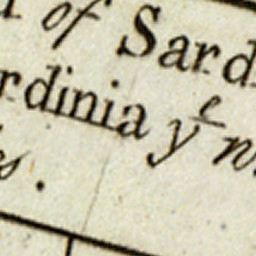 of Sard
rdinia yᵉ
s.